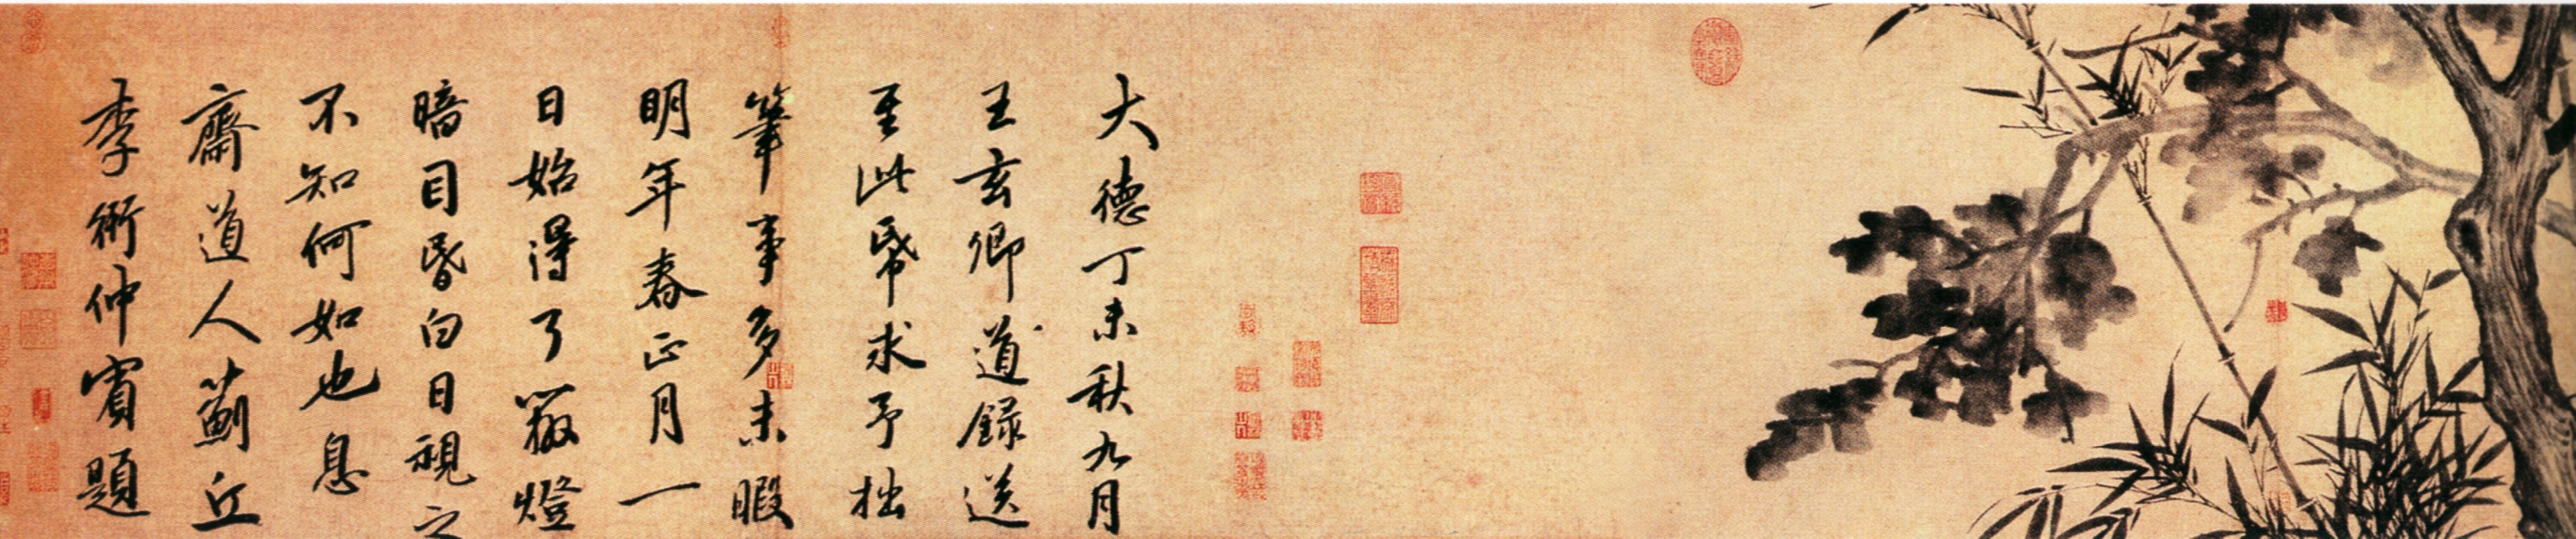 大德丁未秋九月
王玄卿道錄送
至此帋求予拙
筆事多未暇
明年春正月一
日始得了嚴燈
暗目昏白日視之
不知何如也息
齋道人薊丘
李衎仲賓題